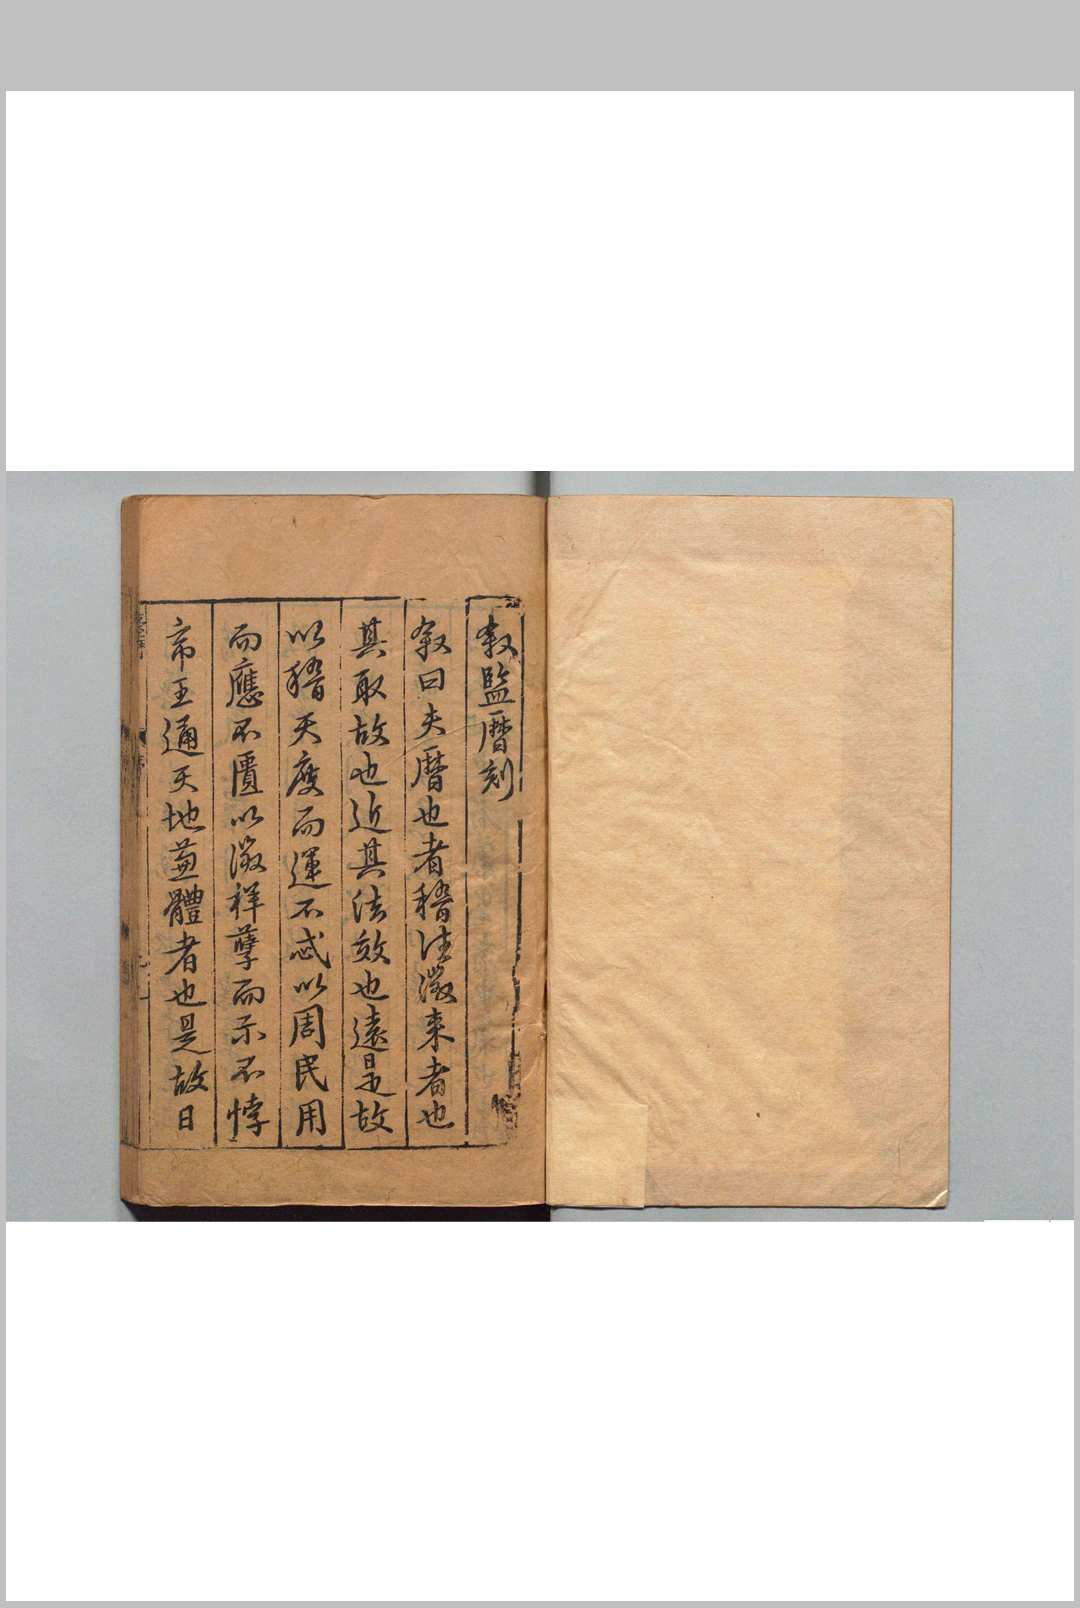 叙監曆刻
叙曰夫曆也者稽往徵来者也
其取故也近其法效也遠是故
以稽天度而運不忒以周民用
而應不匱以徵祥孽而示不悖
帝王通天地兼體者也是故日